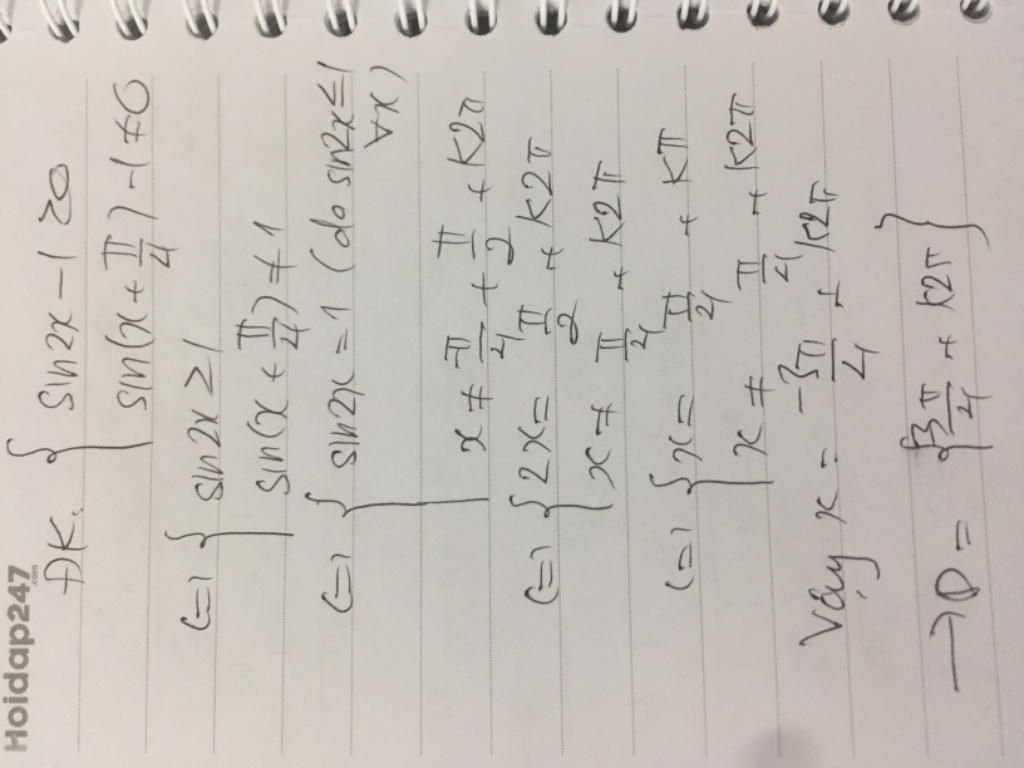 Hoidap247.com
ĐK. { sin2x - 1 ≥ 0
sin(x + π/4) - 1 ≠ 0
(=) { sin2x ≥ 1
sin(x + π/4) ≠ 1
(=) { sin2x = 1 (do sin2x ≤ 1
∀x)
x ≠ -π/4 + π/2 + k2π
(=) { 2x = π/2 + k2π
x ≠ π/4 + k2π
(=) { x = π/4 + kπ
x ≠ π/4 + k2π
Vậy x = -3π/4 + k2π
→ D = {3π/4 + k2π}